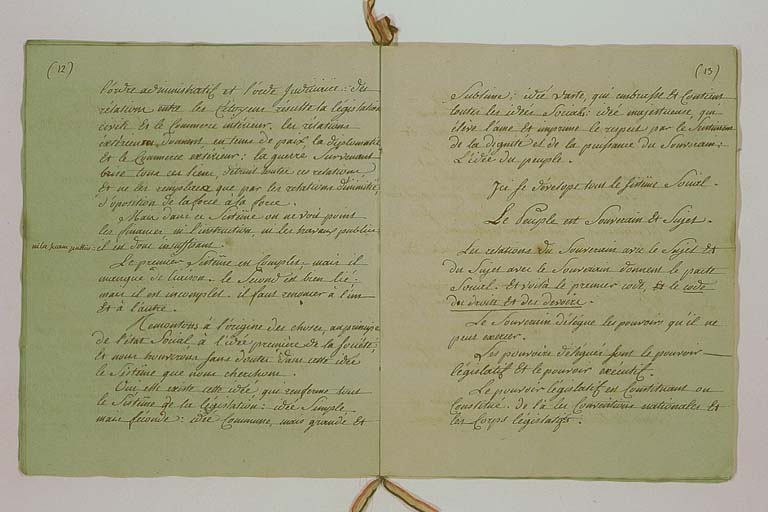 (12)
l'ordre administratif et l'ordre Judiciaire: des
relations entre les Citoyens résulte la législation
civile, Et le Commerce intérieur. les relations
extérieures donnent, en tems de paix, la diplomatie
et le Commerce extérieur: la guerre survenant
brise tous ces liens, détruit toutes ces relations
et ne les remplace que par les relations d'inimitié,
d'oposition de la force à la force.
Mais dans ce Sistême on ne voit point
les finances, ni l'instruction, ni les travaux publics
il est donc insuffisant.
Le premier Sistême est Complet, mais il
manque de liaison. le Second est bien lié,
mais il est incomplet. il faut remedier à l'un
et à l'autre.
Remontons à l'origine des choses, au principe
de l'état Social, à l'idée première de la Société;
et nous trouverons sans doute dans cette idée
le Sistême que nous cherchons.
Oui elle existe cette idée, qui renferme tout
le Sistême de la législation: idée Simple,
mais féconde: idée Commune, mais grande et
(13)
Sublime: idée vaste, qui embrasse et Contient
toutes les idées Sociales: idée majestueuse, qui
élève l'ame et imprime le respect par le Sentiment
de la dignité et de la puissance du Souverain:
L'idée du peuple.
Ici se dévelope tout le Sistême Social.
Le Peuple est Souverain Et Sujet.
Les relations du Souverain avec le Sujet Et
du Sujet avec le Souverain donnent le pacte
Social: et voilà le premier code, Et le code
des droits et des devoirs.
Le Souverain délègue les pouvoirs qu'il ne
peut exercer.
Les pouvoirs délégués sont le pouvoir
législatif et le pouvoir executif.
Le pouvoir législatif est Constituant ou
Constitué. de là les Conventions nationales Et
les Corps législatifs.